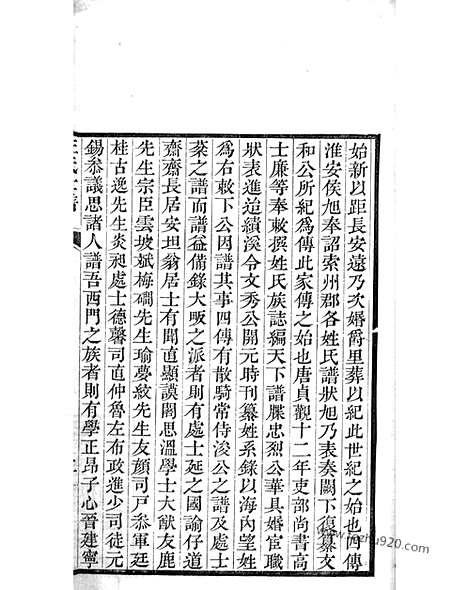 始新以距長安遠乃次婚爵里葬以紀此世紀之始也四傳
淮安侯旭奉詔索州郡各姓氏譜狀旭乃表奏闕下復纂文
和公所紀爲傳此家傳之始也唐貞觀十二年吏部尚書高
士廉等奉敕撰姓氏族誌編天下譜牒忠烈公華具婚宦職
狀表進迨績溪令文秀公開元時刊纂姓系錄以海內望姓
爲右敕下公因譜其事四傳有散騎常侍浚公之譜及處士
棻之譜而譜益備錄大畈之派者則有處士延之國諭仔道
齋齋長居安坦翁居士有聞直顯謨閣思溫學士大猷友鹿
先生宗臣雲坡斌梅磵先生瑜夢紋先生友顏司戸叅軍廷
桂古逸先生炎昶處士德馨司直仲魯左布政進少司徒元
錫叅議思諸人譜吾西門之族者則有學正昂子心晉建寧
fozhu920.com